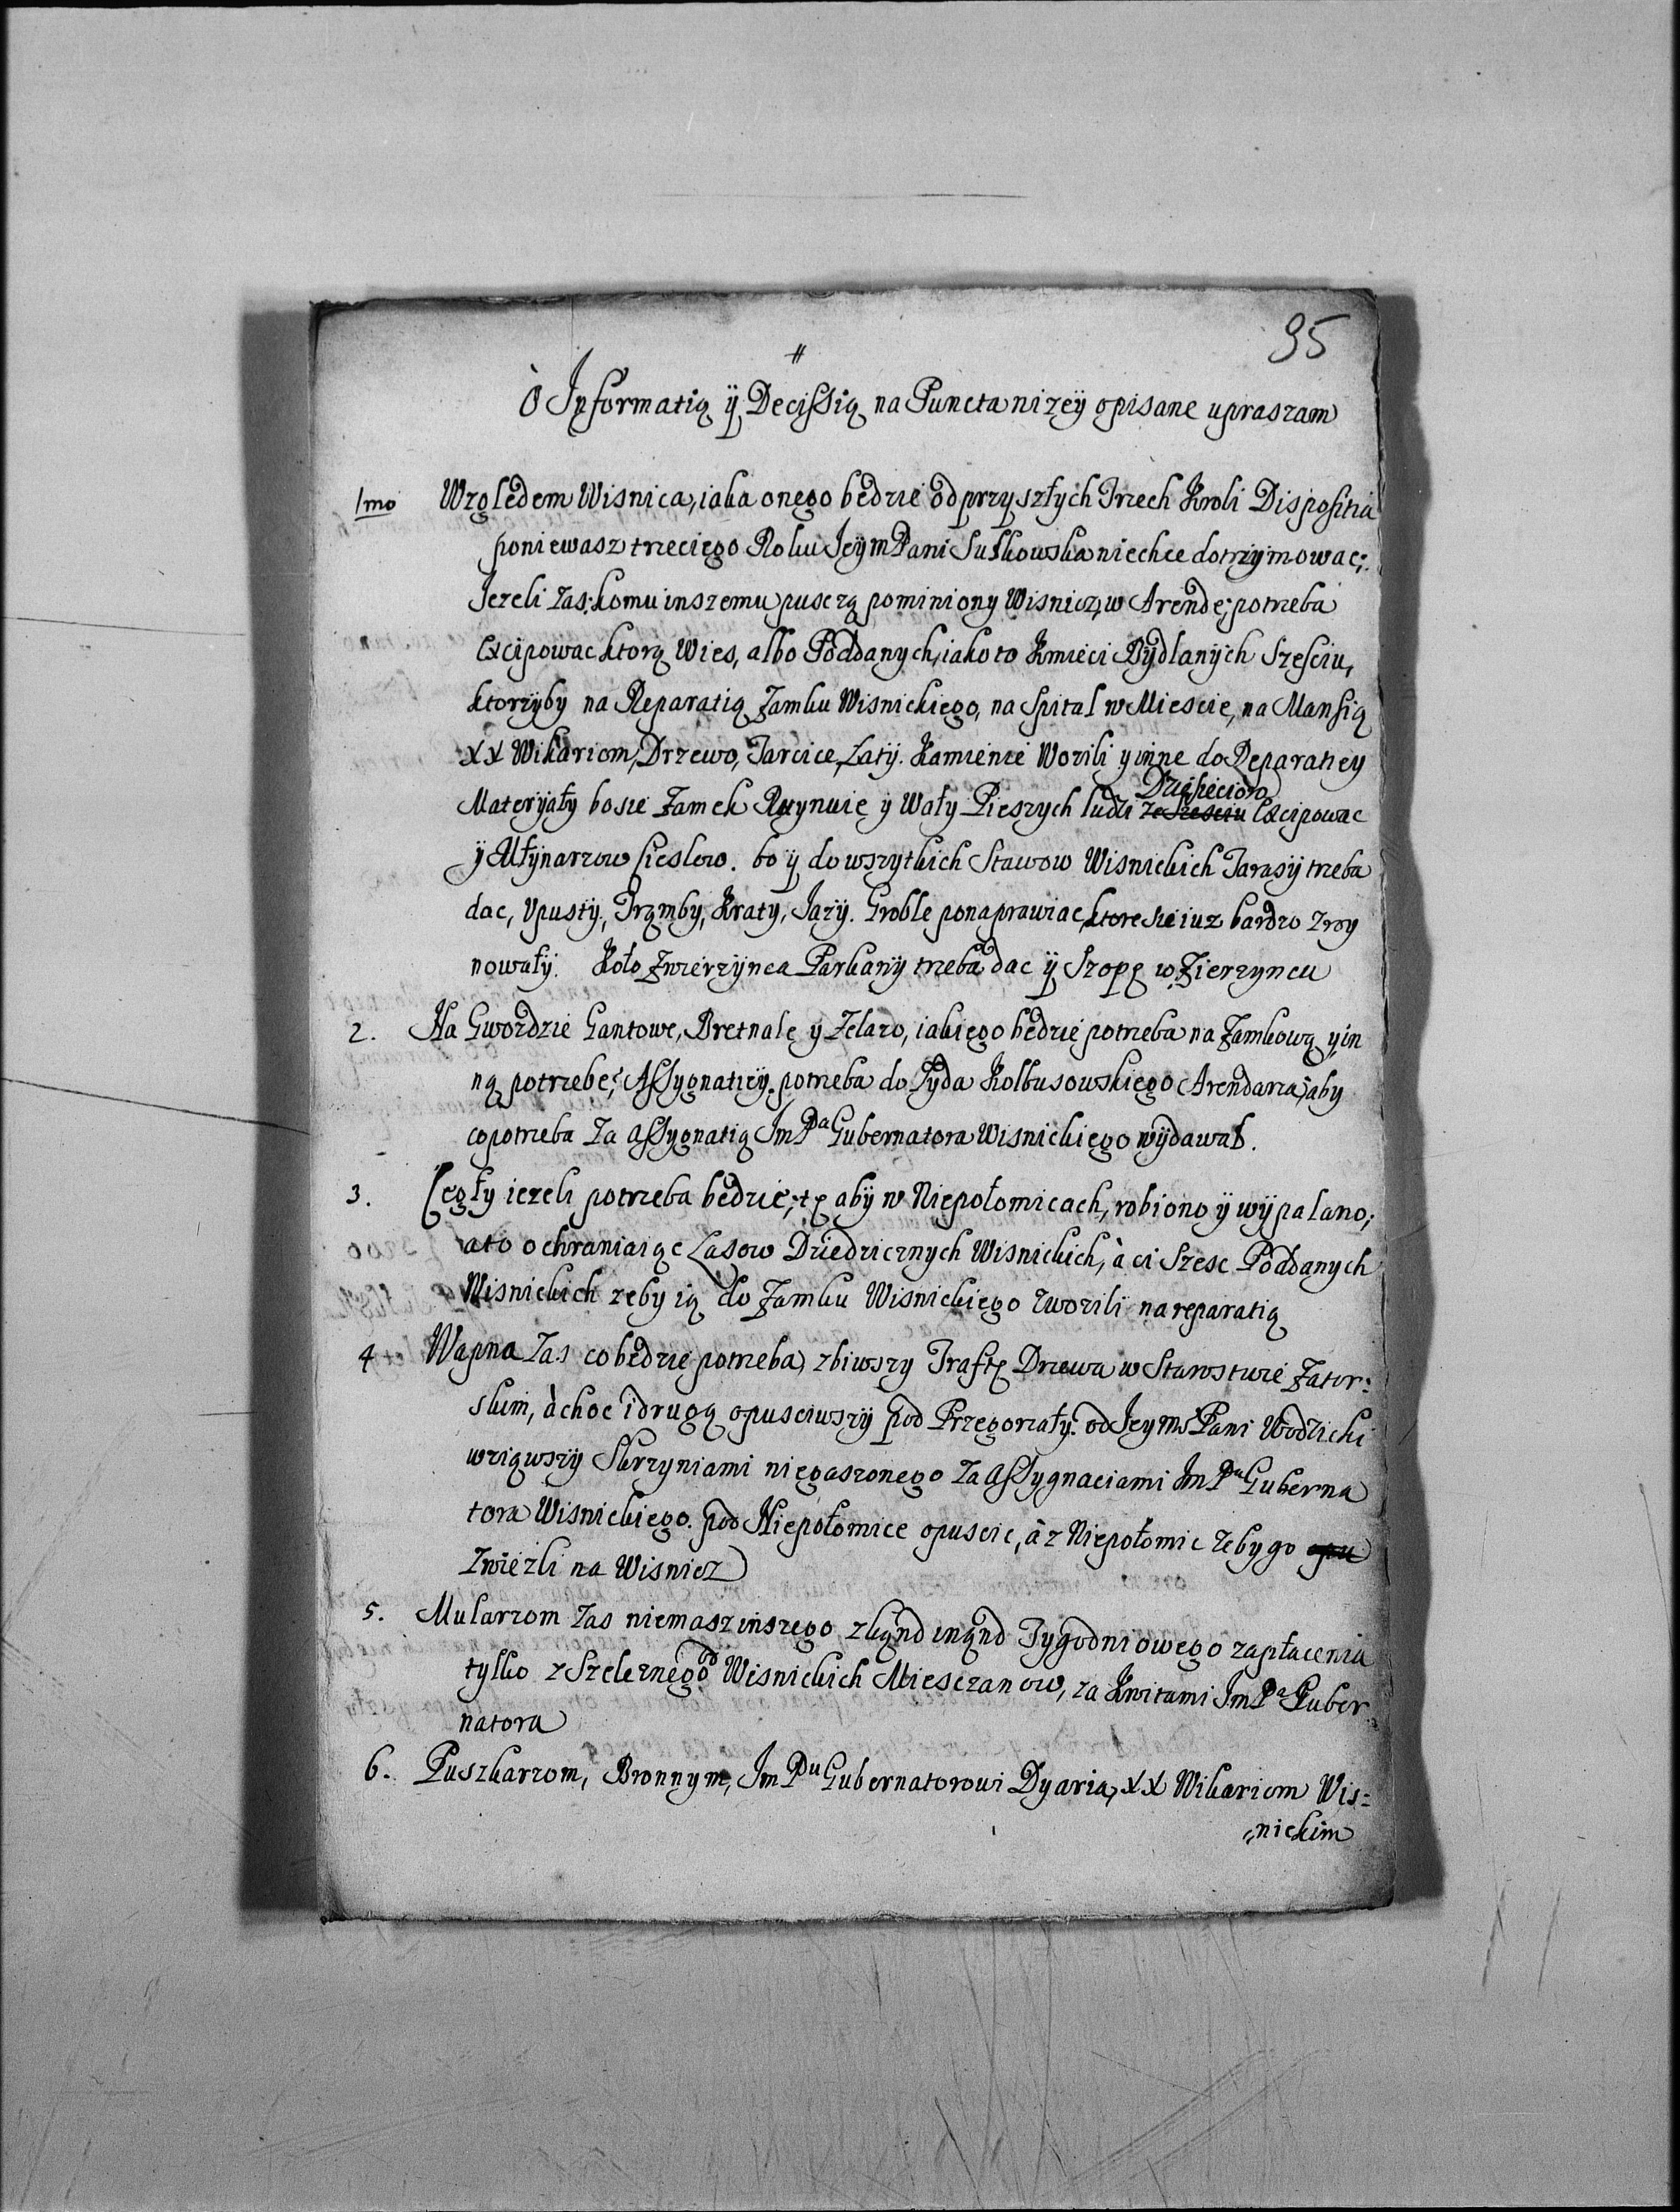 95
#
O Informatią ÿ Decissią na Puncta nizeÿ opisane upraszam
1mo Względem Wisnica, iaka onego bedzie od przyszłych Trzech Kroli Dispositia
poniewasz trzeciego Roku JeÿmPani Sulkowska niechce dotrzÿmowac;
Jezeli zas komu inszemu puszczą pominiony Wisnicz, w Arende; potrzeba
Excipowac ktorą Wies, albo Poddanych, iako to Kmieci Bydlanÿch Szesciu,
ktorzÿby na Reparatią Zamku Wisnickiego, na Spital w Miescie, na Mansią
XX Wikariom, Drzewo, Tarcice, Łatÿ. Kamienie Wozili y inne do Reparatiey
Materÿałÿ bo sie Zamek Ruynuie ÿ Wałÿ Pieszych ludzi ze Szesciu Dziesiecioro Excipowac
ÿ Młÿnarzow Cieslow. bo ÿ do wszytkich Stawow Wisnickich Tarasÿ trzeba
dac, Vpustÿ, Trąmby, Kraty, Jazÿ. Groble ponaprawiac, ktore sie iuz bardzo zroy
nowałÿ. Koło Zwierzÿnca Parkanÿ trzeba dac ÿ Szopę w Zierzyncu
2. Na Gwozdzie Gantowe, Bretnale y Zelazo, iakiego bedzie potrzeba na Zamkową y in
ną potrzebe; Assygnatieÿ potrzeba do Zyda Kolbusowskiego Arendarza, aby
co potrzeba za assygnatią JmPa Gubernatora Wisnickiego wÿdawał.
3. Cegły iezeli potrzeba bedzie, tę abÿ w Niepołomicach, robiono ÿ wÿpalano;
a to ochraniaiąc Lasow Dziedzicznych Wisnickich, à ci Szesc Poddanych
Wisnickich zeby ią do Zamku Wisnickiego zwozili na reparatią
4 Wapna zas co bedzie potrzeba, zbiwszy Traftę Drzewa w Starostwie Zator:
skim, à choc i drugą opusciwszÿ pod Przegorzałÿ. od Jeÿmś Pani Wodzicki
wziąwszÿ Skrzyniami niegaszonego za assygnaciami JmPa Guberna
tora Wisnickiego. pod Niepołomice opuscic, à z Niepołomic zeby go opu
zwiezli na Wisnicz
5. Mularzom zas niemasz inszego zkąnd inąnd Tygodniowego zapłacenia
tylko z Szelęznego od Wisnickich Miesczanow, za Kwitami JmPa Guber
natora
6. Puszkarzom, Bronnym, JmPu Gubernatorowi Dyaria, XX Wikariom Wis:
nickim